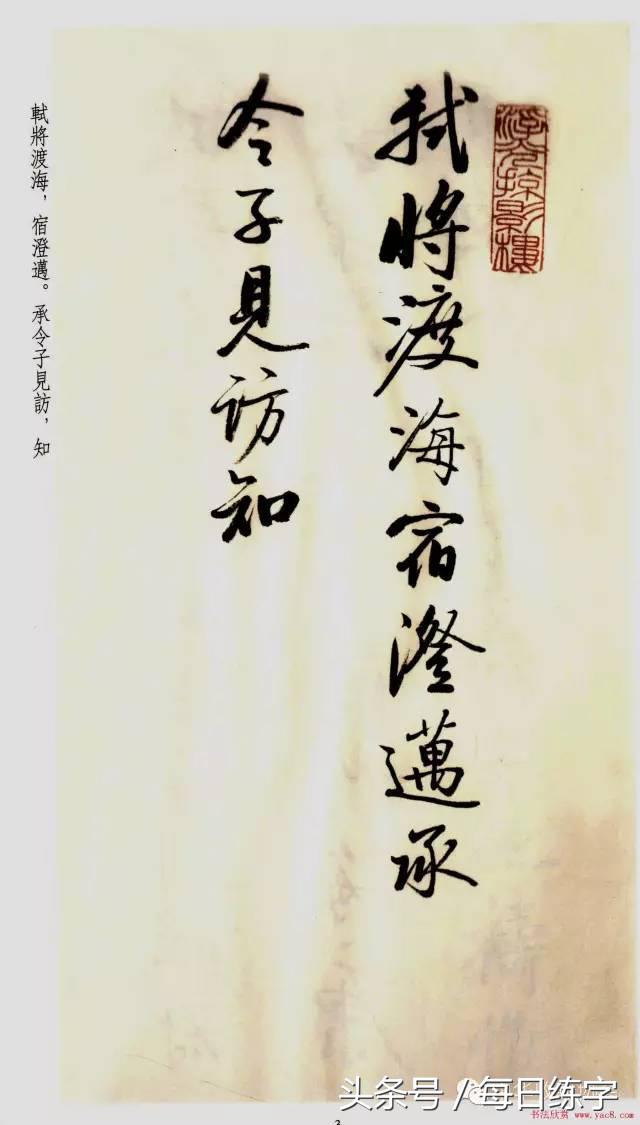 軾將渡海宿澄邁承
令子見訪知
軾將渡海，宿澄邁。承令子見訪，知
头条号 / 每日练字
书法欣赏 www.yac8.com
3